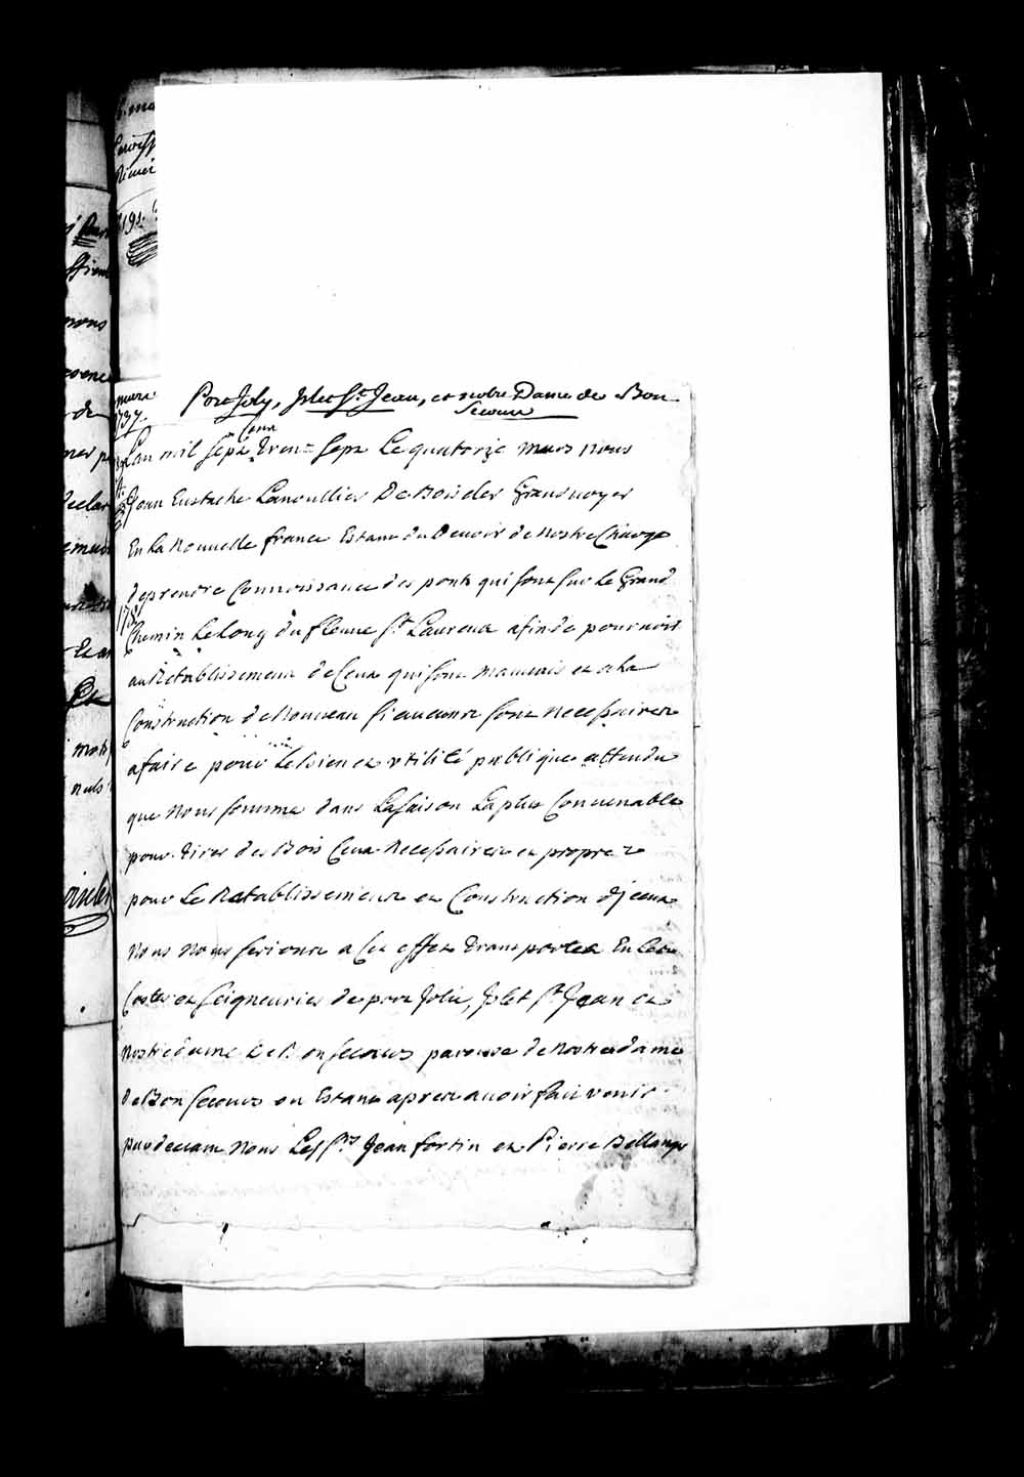 Port Joly, Islet St Jean, et notre Dame de Bon
Secours
mars
1737
Cent
Lan mil Sept Trente Sept Le quatorze mars nous
Jean Eustache Lanoullier De Boiscler Grand voyer
En La Nouvelle france Estant du Devoir de Nostre Charge
de prendre Connoissance des ponts qui sont sur Le Grand
Chemin Le Long du fleuve St Laurent afin de pourvoir
au Retablissement de Ceux qui sont mauvais et a la
Construction de Nouveau si aucuns sont Necessaires
a faire pour Le bien et utilité publique attendu
que Nous somme dans La saison La plus Convenable
pour tirer des Bois Ceux Necessaires et propres
pour Le Retablissement et Construction dyceux
Nous Nous serions a Cet effet Transportez En
Costes et Seigneuries de port Jolie, Islet St Jean et
Nostre dame De Bonsecours paroisse de Nostre dame
de Bon Secours ou Estant apres avoir fait venir
par devant Nous Les Srs Jean fortin et Pierre Bellange